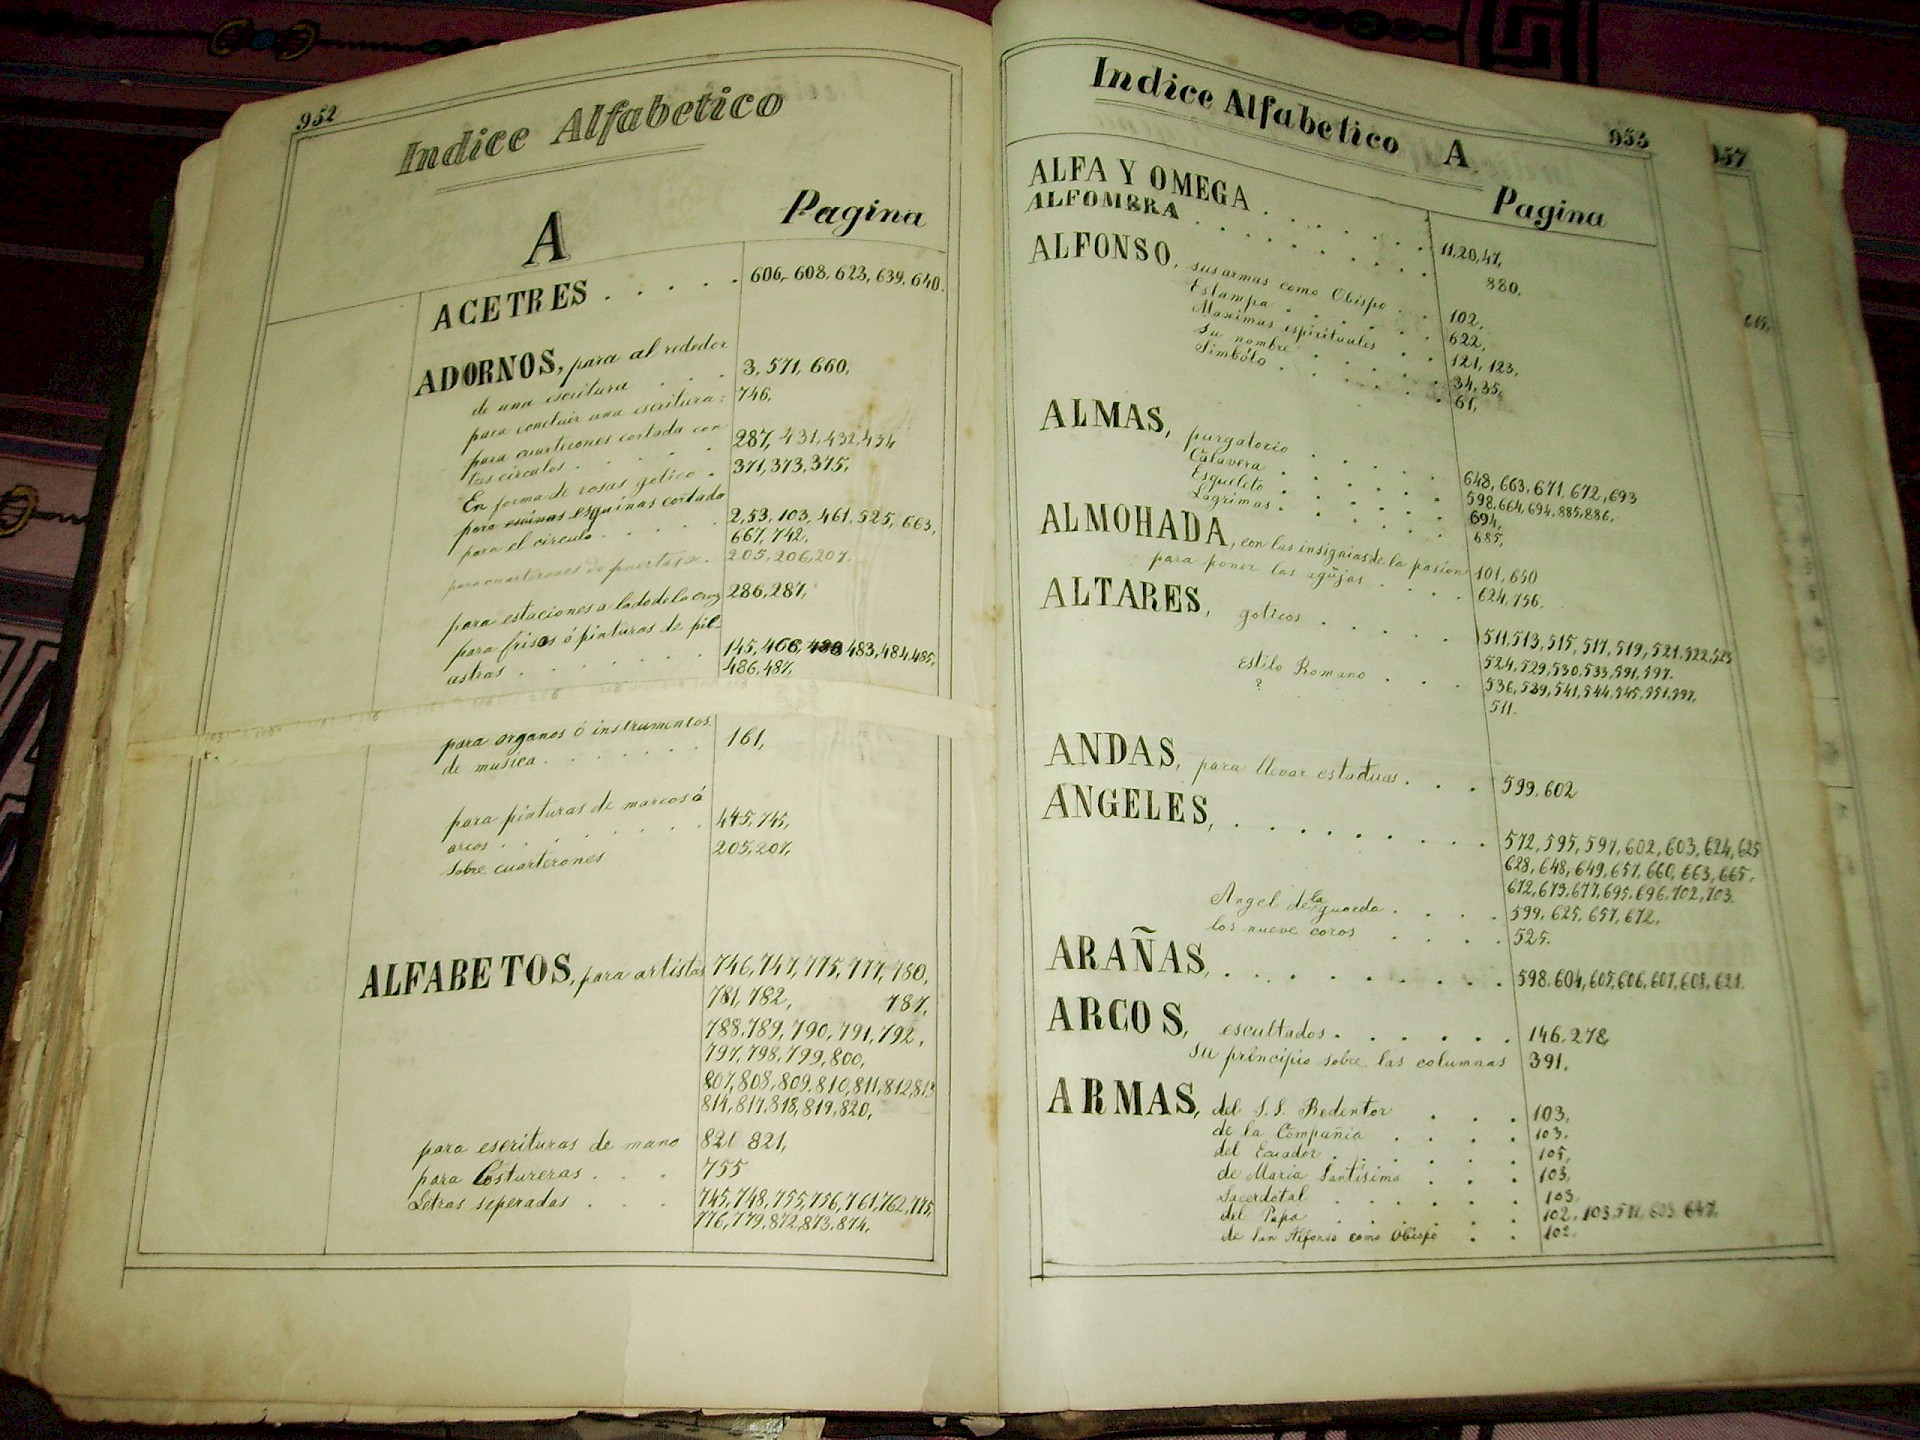 952
Indice Alfabetico
A Pagina
ACETRES . . . . . 606,- 608, 623, 639, 640.
ADORNOS, para al rededor
de una escritura . . . 3, 571, 660,
para concluir una escritura: 746,
para cuarterones cortada con
los circulos . . . . . 287, 431, 432, 434
En forma de rosas gotico . 371, 373, 375,
para esquinas cortada
para el circulo . . . . 2, 53, 103, 461, 525, 663,
667, 742,
para cuarterones de puertas 205, 206, 207.
para estaciones a lado de la cruz 286, 287,
para frisos ó pinturas de pil-
astras . . . . . . . 145, 466, 483, 484, 485,
486, 487,
para organos ó instrumentos
de musica . . . . . . 161,
para pinturas de marcos ó
arcos . . . . . . . 445, 745,
Sobre cuarterones 205, 207,
ALFABETOS, para artistas 746, 747, 775, 777, 780,
781, 782, 787,
788, 789, 790, 791, 792,
797, 798, 799, 800,
807, 808, 809, 810, 811, 812, 813
814, 817, 818, 819, 820,
para escrituras de mano 821 821,
para Costureras . . . 755
Letras seperadas . . . 745, 748, 755, 756, 761, 762, 775,
776, 779, 872, 873, 874,
Indice Alfabetico A 953
Pagina
ALFA Y OMEGA . . . . . . 11, 20, 47,
ALFOMBRA . . . . . . . 880,
ALFONSO, sus armas como Obispo . . 102,
Estampa . . . . . . 622,
Maximas espirituales . . 121, 123,
Su nombre . . . . . 34, 35,
Simbólo . . . . . . 61,
ALMAS, purgatorio . . . . 648, 663, 671, 672, 693
Calavera . . . . . 598, 664, 694, 885, 886,
Esqueleto . . . . . 694,
Lagrimas . . . . . 685,
ALMOHADA, con las insignias de la pasion 101, 640
para poner las agujas . . . 624, 756,
ALTARES, goticos . . . . . 511, 513, 515, 517, 519, 521, 522, 523
524, 529, 530, 533, 591, 597.
estilo Romano . . . 536, 539, 541, 544, 545, 551, 597,
? 511.
ANDAS, para llevar estatuas . . . 599, 602
ANGELES, . . . . . . . . 572, 595, 597, 602, 603, 624, 625
628, 648, 649, 657, 660, 663, 665,
672, 673, 677, 695, 696, 702, 703.
Angel de la guarda . . . . 599, 625, 657, 672,
los nueve coros . . . . 525.
ARAÑAS, . . . . . . . . 598, 604, 605, 606, 607, 608, 621.
ARCOS, escultados . . . . . . 146, 278,
Su principio sobre las columnas 391,
ARMAS, del S.S. Redentor . . . 103,
de la Compañia . . . . 103.
del Ecuador . . . . . 105,
de Maria Santisima . . . 103,
Sacerdotal . . . . . 103.
del Papa . . . . . . 102, 103, 511, 603, 647,
de San Alfonso como Obispo . . 102.
957